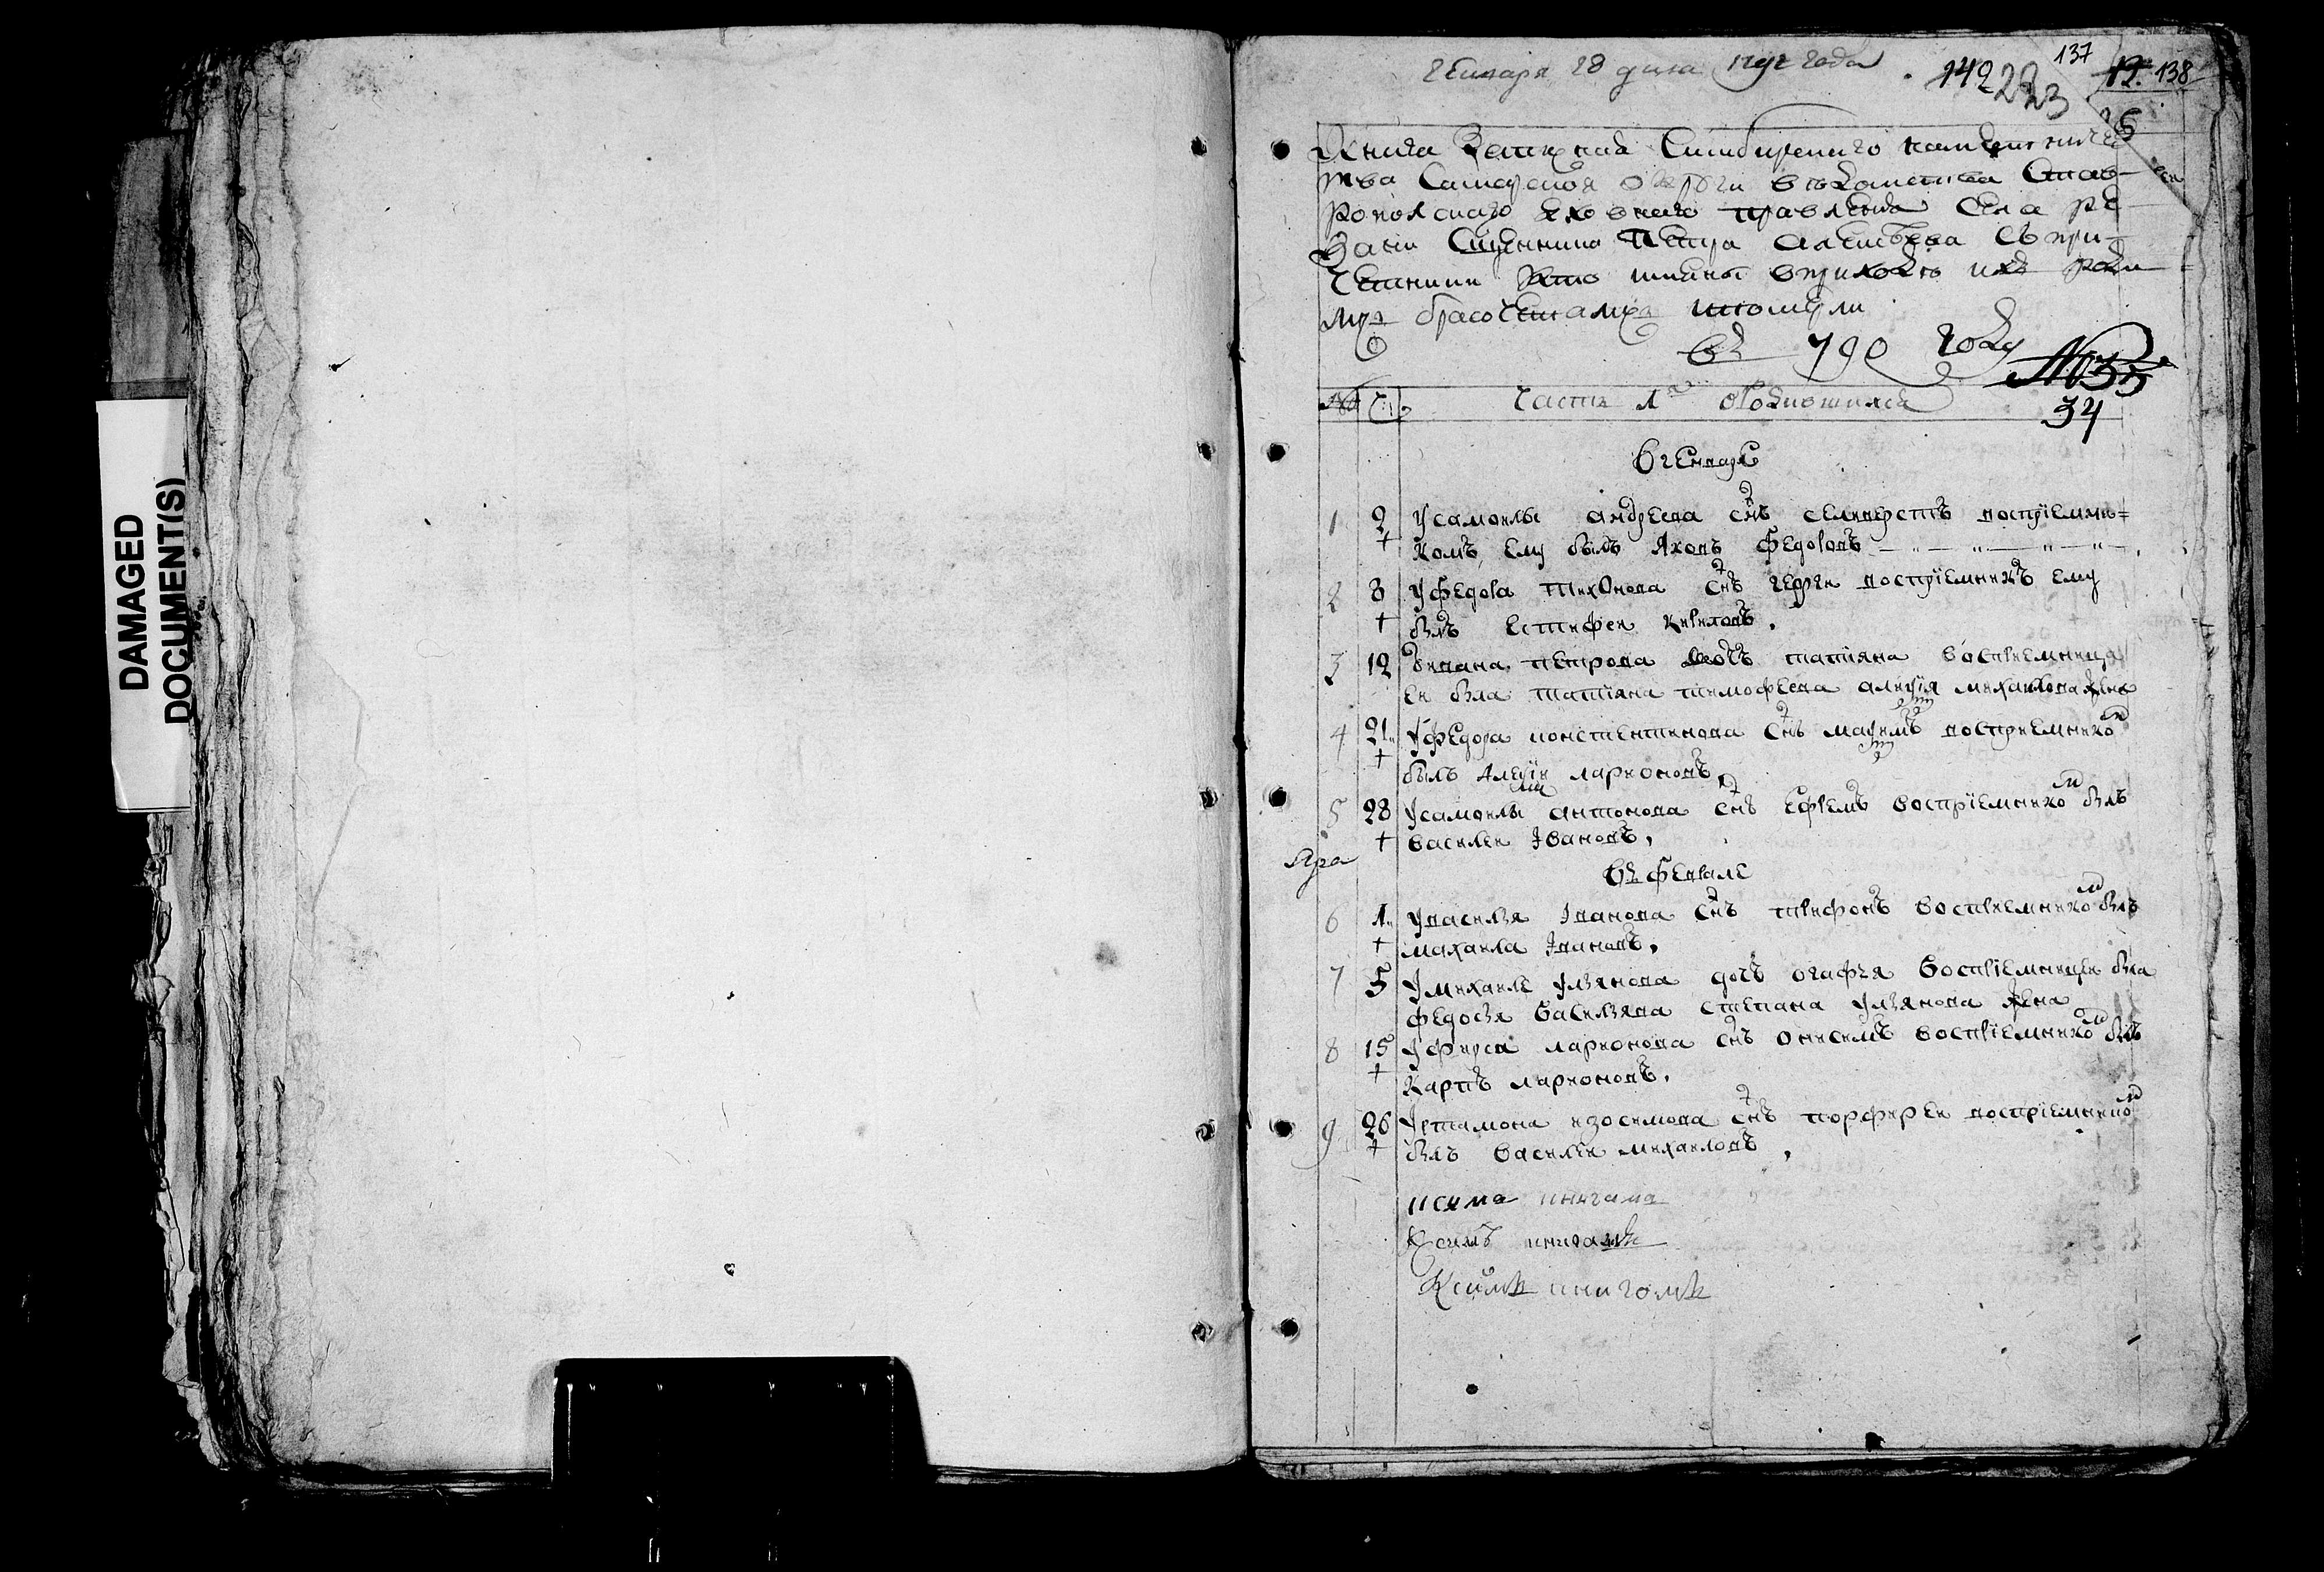 DAMAGED
DOCUMENT(S)
Генваря 28 дня 1791 года
137
142 22 23
12. 138
Книга данная Симбирскаго наместниче
ства Самарской округи в ведомства Став-
ропольскаго духовнаго правления села Ре
Священника Петра Алексеева съ при-
четники кто имены в приходе ихъ роди
лись бракосочетались и померли
въ 790 году
№ 35
34
Часть 1я о родившихся
в генваре
1 2 У самоилы андреева снъ селиверстъ восприемни=
комъ ему былъ Яковъ Федоровъ
2 8 У федора тихонова снъ восприемникъ ему
былъ Естифеи Кириловъ.
3 12 У ивана петрова дочь татияна восприемница
еи была татияна тимофеева михаилова жена
4 21 У федора констентинова снъ максимъ восприемникомъ
былъ Алексѣи ларионовъ.
5 28 У самоилы антонова снъ Ефремъ восприемникомъ былъ
василеи Ивановъ.
въ феврале
6 1 У василья Иванова снъ трифонъ восприемникомъ былъ
михаила Ивановъ.
7 5 У михаиле ульянова дочь огафья восприемницеи была
федосья васильева степана ульянова жена
8 15 У фирса ларионова снъ онисимъ восприемникомъ былъ
Карпъ ларионовъ.
9 26 У артамона изосимова снъ порфиреи восприемникомъ
былъ василеи михаиловъ.
книгамъ
К симъ книгамъ
К симъ книгомъ